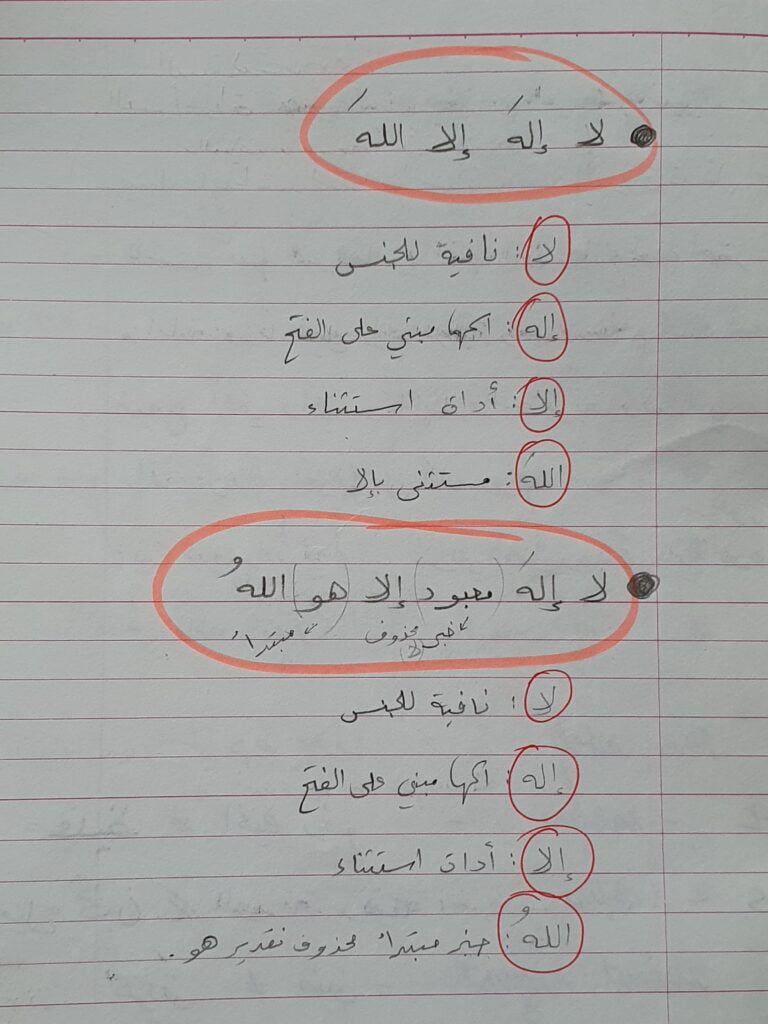 لا إلهَ إلا اللهَ
لا : نافية للجنس
إله : اسمها مبني على الفتح
إلا : أداة استثناء
اللهَ : مستثنى بإلا
لا إلهَ (معبود) إلا (هو) اللهُ
خبر محذوف مبتدأ
لا : نافية للجنس
إله : اسمها مبني على الفتح
إلا : أداة استثناء
اللهُ : خبر مبتدأ محذوف تقدير هو .